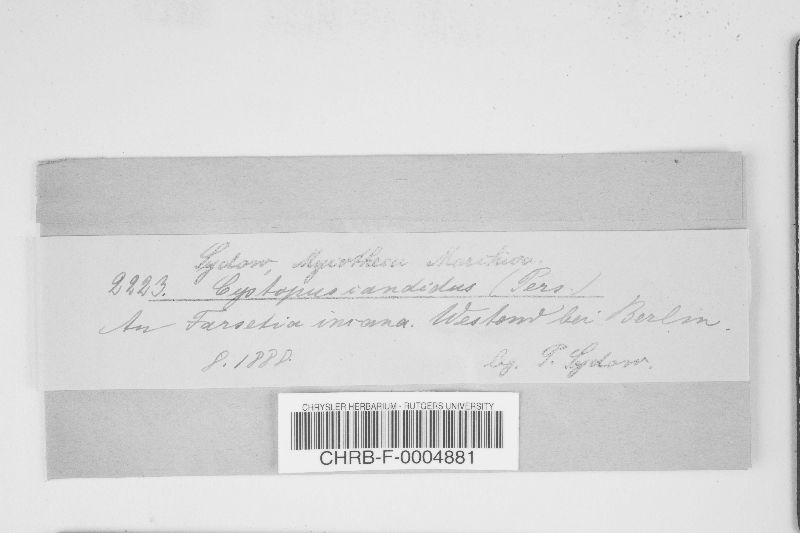 Sydow, Mycotheca Marchica.
2223. Cystopus candidus (Pers.)
An Farsetia incana. Westend bei Berlin.
8. 1888. lg. P. Sydow.
CHRYSLER HERBARIUM - RUTGERS UNIVERSITY
CHRB-F-0004881